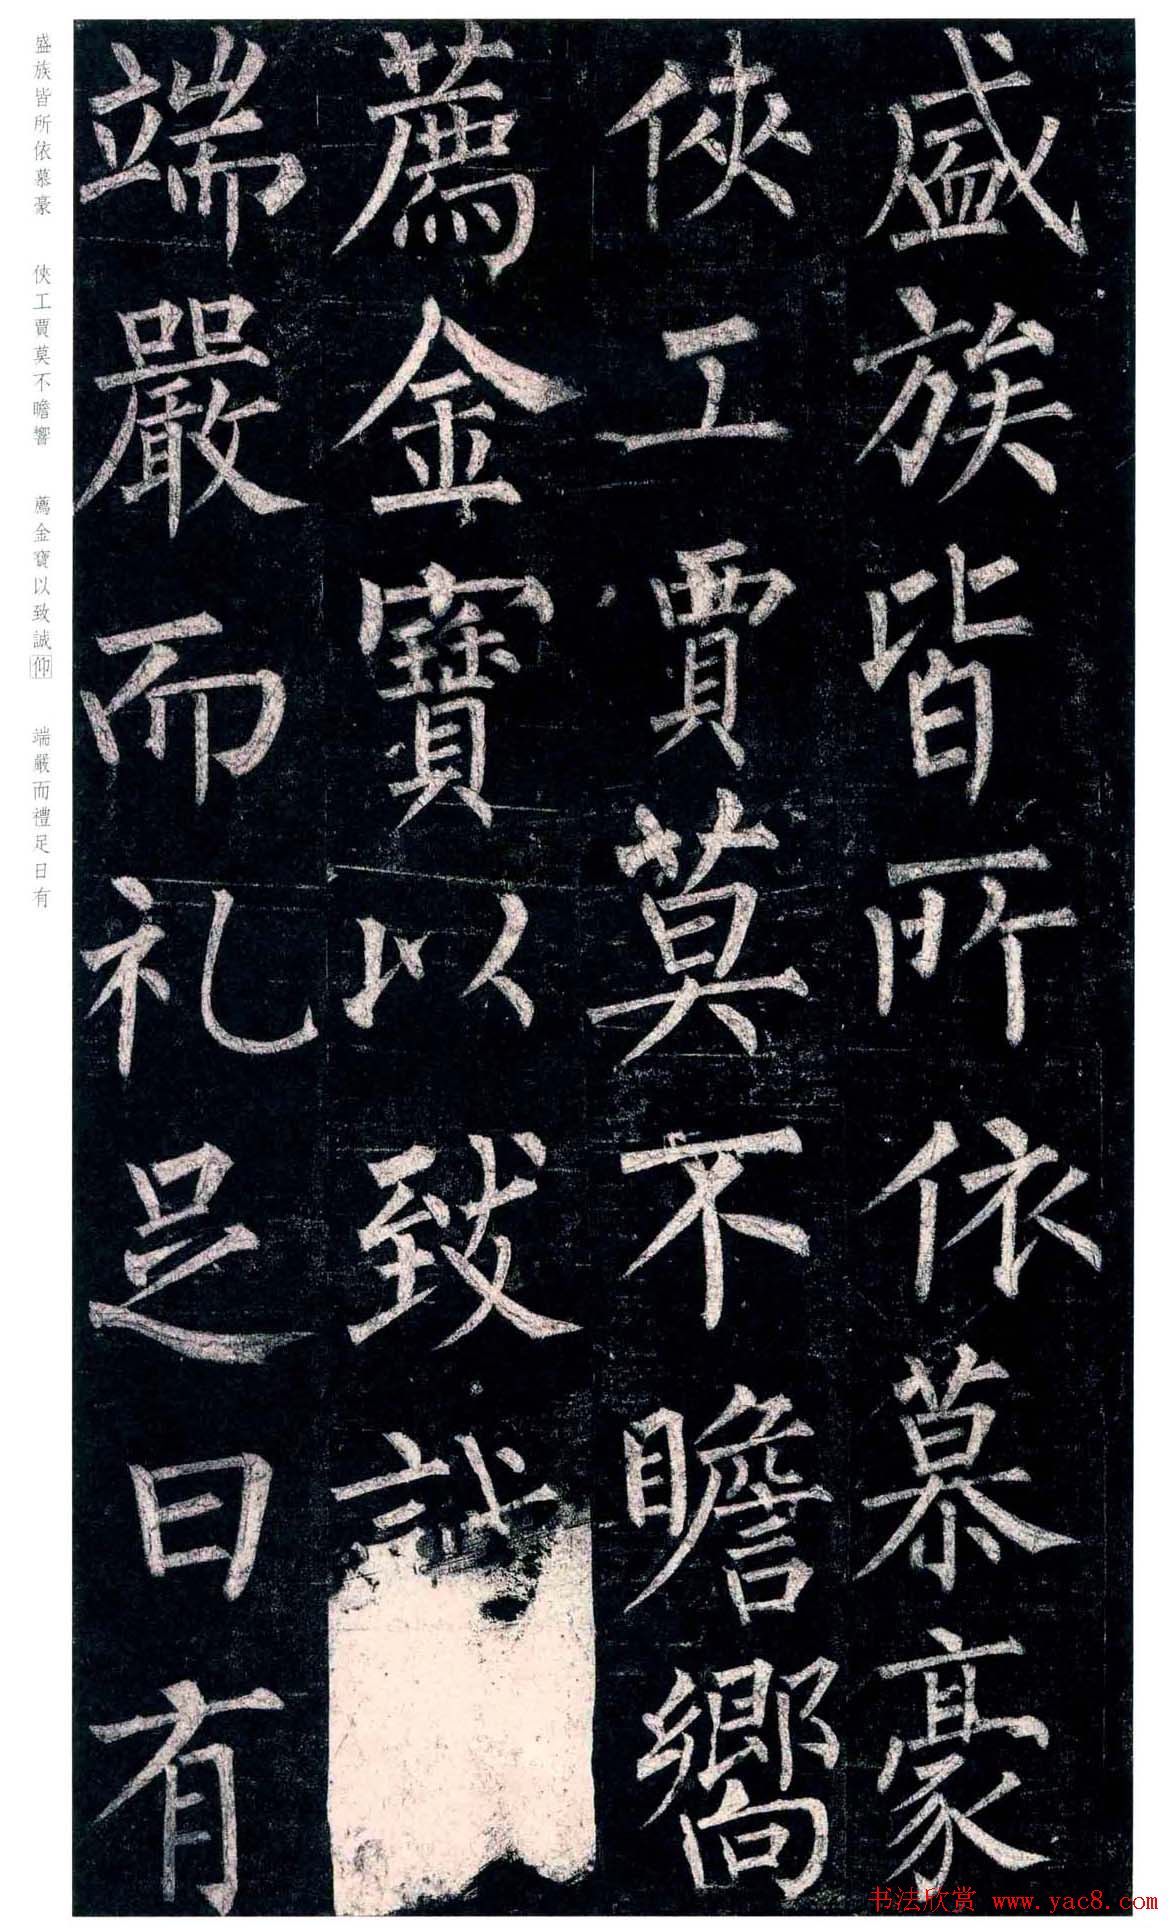 盛族皆所依慕豪
俠工賈莫不瞻嚮
薦金寶以致誠
端嚴而礼足日有
盛族皆所依慕豪　俠工賈莫不瞻響　薦金寶以致誠仰　端嚴而禮足日有
书法欣赏 www.yac8.com